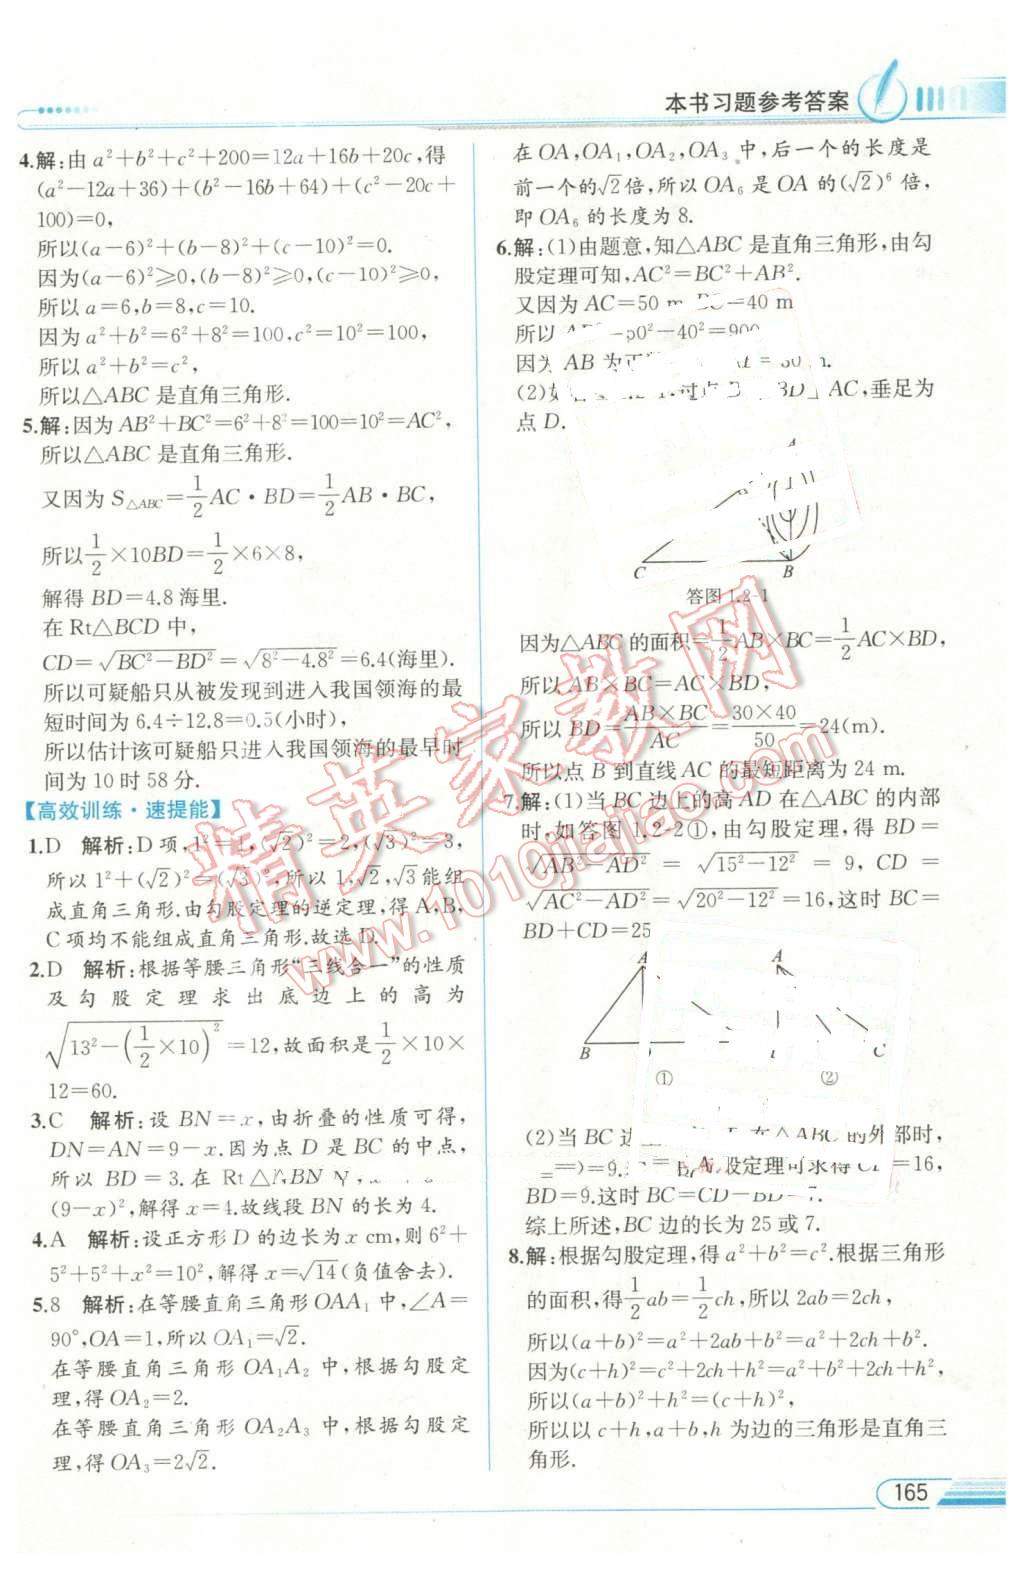 本书习题参考答案
4.解:由 a²+b²+c²+200=12a+16b+20c,得
(a²-12a+36)+(b²-16b+64)+(c²-20c+
100)=0,
所以(a-6)²+(b-8)²+(c-10)²=0.
因为(a-6)²≥0,(b-8)²≥0,(c-10)²≥0,
所以 a=6,b=8,c=10.
因为 a²+b²=6²+8²=100,c²=10²=100,
所以 a²+b²=c²,
所以△ABC 是直角三角形.
5.解:因为 AB²+BC²=6²+8²=100=10²=AC²,
所以△ABC 是直角三角形.
又因为 S△ABC=1/2 AC·BD=1/2 AB·BC,
所以 1/2×10BD=1/2×6×8,
解得 BD=4.8 海里.
在 Rt△BCD 中,
CD=√(BC²-BD²)=√(8²-4.8²)=6.4(海里).
所以可疑船只从被发现到进入我国领海的最
短时间为 6.4÷12.8=0.5(小时),
所以估计该可疑船只进入我国领海的最早时
间为 10 时 58 分.
【高效训练·速提能】
1.D 解析:D 项,1²=1,(√2)²=2,(√3)²=3,
所以 1²+(√2)²=(√3)²,所以 1,√2,√3能组
成直角三角形.由勾股定理的逆定理,得 A,B,
C 项均不能组成直角三角形.故选 D.
2.D 解析:根据等腰三角形“三线合一”的性质
及勾股定理求出底边上的高为
√(13²-(1/2×10)²)=12,故面积是 1/2×10×
12=60.
3.C 解析:设 BN=x,由折叠的性质可得,
DN=AN=9-x.因为点 D 是 BC 的中点,
所以 BD=3.在 Rt△NBN
(9-x)²,解得 x=4.故线段 BN 的长为 4.
4.A 解析:设正方形 D 的边长为 x cm,则 6²+
5²+5²+x²=10²,解得 x=√14(负值舍去).
5.8 解析:在等腰直角三角形 OAA₁ 中,∠A=
90°,OA=1,所以 OA₁=√2.
在等腰直角三角形 OA₁A₂ 中,根据勾股定
理,得 OA₂=2.
在等腰直角三角形 OA₂A₃ 中,根据勾股定
理,得 OA₃=2√2.
在 OA,OA₁,OA₂,OA₃ 中,后一个的长度是
前一个的√2倍,所以 OA₆ 是 OA 的(√2)⁶ 倍,
即 OA₆ 的长度为 8.
6.解:(1)由题意,知△ABC 是直角三角形,由勾
股定理可知,AC²=BC²+AB².
又因为 AC=50 m, =40 m
所以 50²-40²=900
因为 AB 为正 m.
(2)如 过点 BD⊥AC,垂足为
点 D.
A
C B
答图 1.2-1
因为△ABC 的面积=1/2 AB×BC=1/2 AC×BD,
所以 AB×BC=AC×BD,
所以 BD=(AB×BC)/AC=(30×40)/50=24(m).
所以点 B 到直线 AC 的最短距离为 24 m.
7.解:(1)当 BC 边上的高 AD 在△ABC 的内部
时,如答图 1.2-2①,由勾股定理,得 BD=
√(AB²-AD²)=√(15²-12²)=9,CD=
√(AC²-AD²)=√(20²-12²)=16,这时 BC=
BD+CD=25
A A
B C
① ②
(2)当 BC 边 在△ABC 的外部时,
股定理可求得 =16,
BD=9.这时 BC=CD-BD=7.
综上所述,BC 边的长为 25 或 7.
8.解:根据勾股定理,得 a²+b²=c².根据三角形
的面积,得 1/2 ab=1/2 ch,所以 2ab=2ch,
所以(a+b)²=a²+2ab+b²=a²+2ch+b².
因为(c+h)²=c²+2ch+h²=a²+b²+2ch+h²,
所以(a+b)²+h²=(c+h)²,
所以以 c+h,a+b,h 为边的三角形是直角三
角形.
165
精英家教网
www.1010jiajiao.com